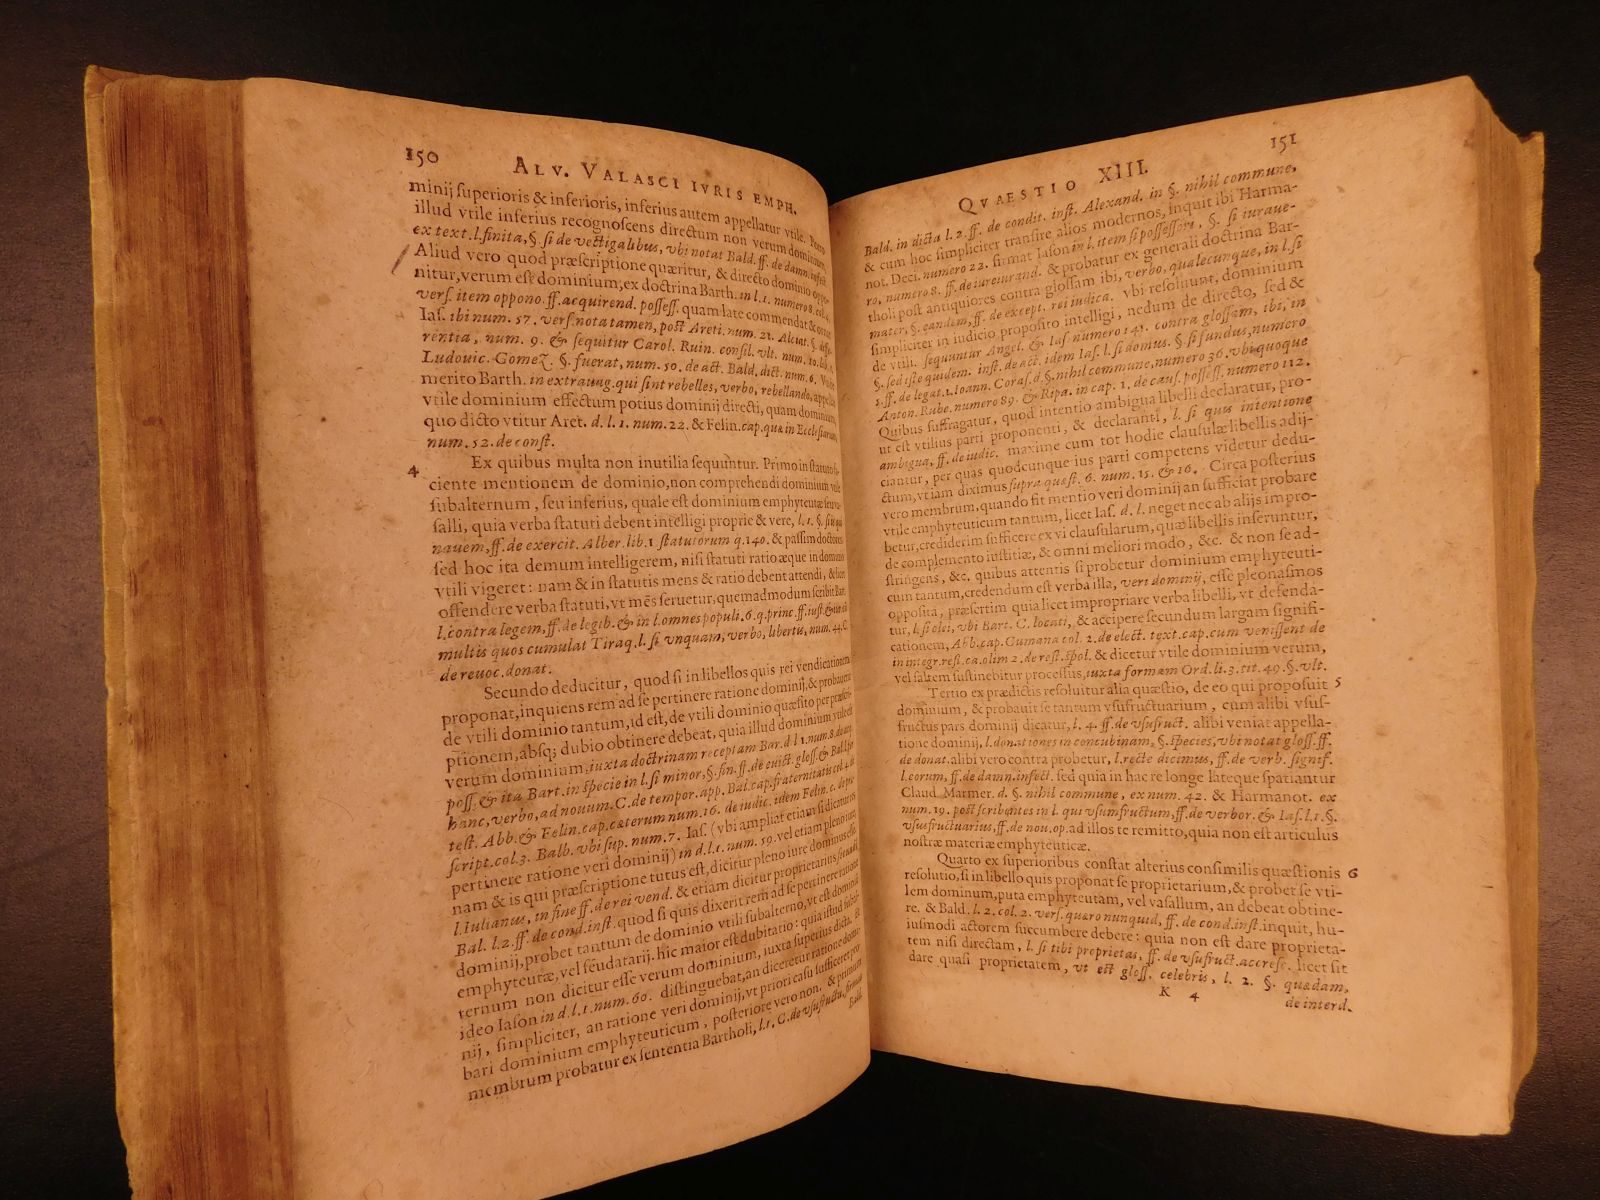 150
ALV. VALASCI IVRIS EMPH.
minij superioris & inferioris, inferius autem appellatur vtile. Porro
illud vtile inferius recognoscens directum non verum dominium,
ex text. l. finita, §. si de vectigalibus, vbi notat Bald. ff. de damn. infect.
Aliud vero quod præscriptione quæritur, & directo dominio oppo-
nitur, verum est dominium, ex doctrina Barth. in l. 1. numero 8. col. 4.
vers. item oppono. ff. acquirend. possess. quam late commendat &
Ias. ibi num. 57. vers. nota tamen, post Areti. num. 21. Alciat. §. diffe-
rentia, num. 9. & sequitur Carol. Ruin. consil. vlt. num. 10. lib. 1.
Ludouic. Gomez. §. fuerat, num. 50. de act. Bald. dict. num. 6. Vnde
merito Barth. in extrauag. qui sint rebelles, verbo, rebellando, appellat
vtile dominium effectum potius dominij directi, quam dominium,
quo dicto vtitur Aret. d. l. 1. num. 22. & Felin. cap. quæ in Ecclesiarum,
num. 52. de const.
4 Ex quibus multa non inutilia sequuntur. Primo in statuto fa-
ciente mentionem de dominio, non comprehendi dominium vtile
subalternum, seu inferius, quale est dominium emphyteutæ seu vas-
salli, quia verba statuti debent intelligi proprie & vere, l. 1. §. si is qui
nauem, ff. de exercit. Alber. lib. 1 statutorum q. 140. & passim doctores.
sed hoc ita demum intelligerem, nisi statuti ratio æque in domino
vtili vigeret: nam & in statutis mens & ratio debent attendi, & licet
offendere verba statuti, vt mēs seruetur, quemadmodum scribit Bart.
l. contra legem, ff. de legib. & in l. omnes populi. 6. q. princ. ff. iust. & iure cū
multis quos cumulat Tiraq. l. si vnquam, verbo, libertis, num. 44. C.
de reuoc. donat.
Secundo deducitur, quod si in libellos quis rei vendicationem
proponat, inquiens rem ad se pertinere ratione dominij, & probauerit
de vtili dominio tantum, id est, de vtili dominio quæsito per præscri-
ptionem, absq; dubio obtinere debeat, quia illud dominium vtile est
verum dominium, iuxta doctrinam receptam Bar. d. l. 1. num. 8. de acq.
poss. & ita Bart. in specie in l. si minor, §. fin. ff. de euict. gloss. & Bal. l. per
hanc, verbo, ad nouum. C. de tempor. app. Bal. cap. fraternitatis col. 4. de
test. Abb. & Felin. cap. cæterum num. 16. de iudic. idem Felin. c. de præ-
script. col. 3. Balb. vbi sup. num. 7. Ias. (vbi ampliat etiam si dicat rem
pertinere ratione veri dominij) in d. l. 1. num. 59. vel etiam pleno iure,
nam & is qui præscriptione tutus est, dicitur pleno iure dominus esse
l. Iulianus, in fine ff. de rei vend. & etiam dicitur proprietarius secundū
Bal. l. 2. ff. de cond. inst. quod si quis dixerit rem ad se pertinere ratione
dominij, probet tantum de dominio vtili subalterno, vt est dominiū
emphyteutæ, vel feudatarij. hic maior est dubitatio: quia istud subal-
ternum non dicitur esse verum dominium, iuxta superius dicta. Et
ideo Iason in d. l. 1. num. 60. distinguebat, an diceretur ratione domi-
nij, simpliciter, an ratione veri dominij, vt priori casu sufficeret pro
bari dominium emphyteuticum, posteriore vero non. & primum
membrum probatur ex sententia Bartholi, l. 1. C. de vsufructu, firmant
Bald.
QVAESTIO XIII.
151
Bald. in dicta l. 2. ff. de condit. inst. Alexand. in §. nihil commune,
& cum hoc simpliciter transire alios modernos, inquit ibi Harma-
not. Deci. numero 22. firmat Iason in l. item si possessori, §. si iuraue-
ro, numero 8. ff. de iureiurand. & probatur ex generali doctrina Bar-
tholi post antiquiores contra glossam ibi, verbo, qualecunque, in l. si
mater, §. eandem, ff. de except. rei iudica. vbi resoluunt, dominium
simpliciter in iudicio proposito intelligi, nedum de directo, sed &
de vtili. sequuntur Angel. & Ias. numero 141. contra glossam, ibi, in
§. sed iste quidem. inst. de act. idem Ias. l. si domus. §. si fundus, numero
1. ff. de legat. 1. Ioann. Coras. d. §. nihil commune, numero 36. vbi quoque
Anton. Rube. numero 89. & Ripa. in cap. 1. de caus. possess. numero 112.
Quibus suffragatur, quod intentio ambigua libelli declaratur, pro-
ut est vtilius parti proponenti, & declaranti, l. si quis intentione
ambigua, ff. de iudic. maxime cum tot hodie clausulæ libellis adij-
ciantur, per quas quodcunque ius parti competens videtur dedu-
ctum, vt iam diximus supra quæst. 6. num. 15. & 16. Circa posterius
vero membrum, quando fit mentio veri dominij an sufficiat probare
vtile emphyteuticum tantum, licet Ias. d. l. neget nec ab alijs impro-
betur, crediderim sufficere ex vi clausularum, quæ libellis inseruntur,
de complemento iustitiæ, & omni meliori modo, &c. & non se ad-
stringens, &c. quibus attentis si probetur dominium emphyteuti-
cum tantum, credendum est verba illa, veri dominij, esse pleonasmos
opposita, præsertim quia licet impropriare verba libelli, vt defenda-
tur, l. si olei, vbi Bart. C. locati, & accipere secundum largam signifi-
cationem, Abb. cap. Cumana col. 2. de elect. text. cap. cum venissent de
in integr. rest. ca. olim 2. de rest. spol. & dicetur vtile dominium verum,
vel saltem sustinebitur processus, iuxta formam Ord. li. 3. tit. 49. §. vlt.
Tertio ex prædictis resoluitur alia quæstio, de eo qui proposuit 5
dominium, & probauit se tantum vsufructuarium, cum alibi vsus-
fructus pars dominij dicatur, l. 4. ff. de vsufruct. alibi veniat appella-
tione dominij, l. donationes in concubinam, §. species, vbi notat gloss. ff.
de donat. alibi vero contra probetur, l. recte dicimus, ff. de verb. signif.
l. eorum, ff. de damn. infect. sed quia in hac re longe lateque spatiantur
Claud. Marmer. d. §. nihil commune, ex num. 42. & Harmanot. ex
num. 19. post scribentes in l. qui vsumfructum, ff. de verbor. & Ias. l. 1. §.
vsusfructuarius, ff. de nou. op. ad illos te remitto, quia non est articulus
nostræ materiæ emphyteuticæ.
Quarto ex superioribus constat alterius consimilis quæstionis 6
resolutio, si in libello quis proponat se proprietarium, & probet se vti-
lem dominum, puta emphyteutam, vel vasallum, an debeat obtine-
re. & Bald. l. 2. col. 2. vers. quæro nunquid, ff. de cond. inst. inquit, hu-
iusmodi actorem succumbere debere: quia non est dare proprieta-
tem nisi directam, l. si tibi proprietas, ff. de vsufruct. accresc. licet sit
dare quasi proprietatem, vt est gloss. celebris, l. 2. §. quædam,
K 4
de interd.